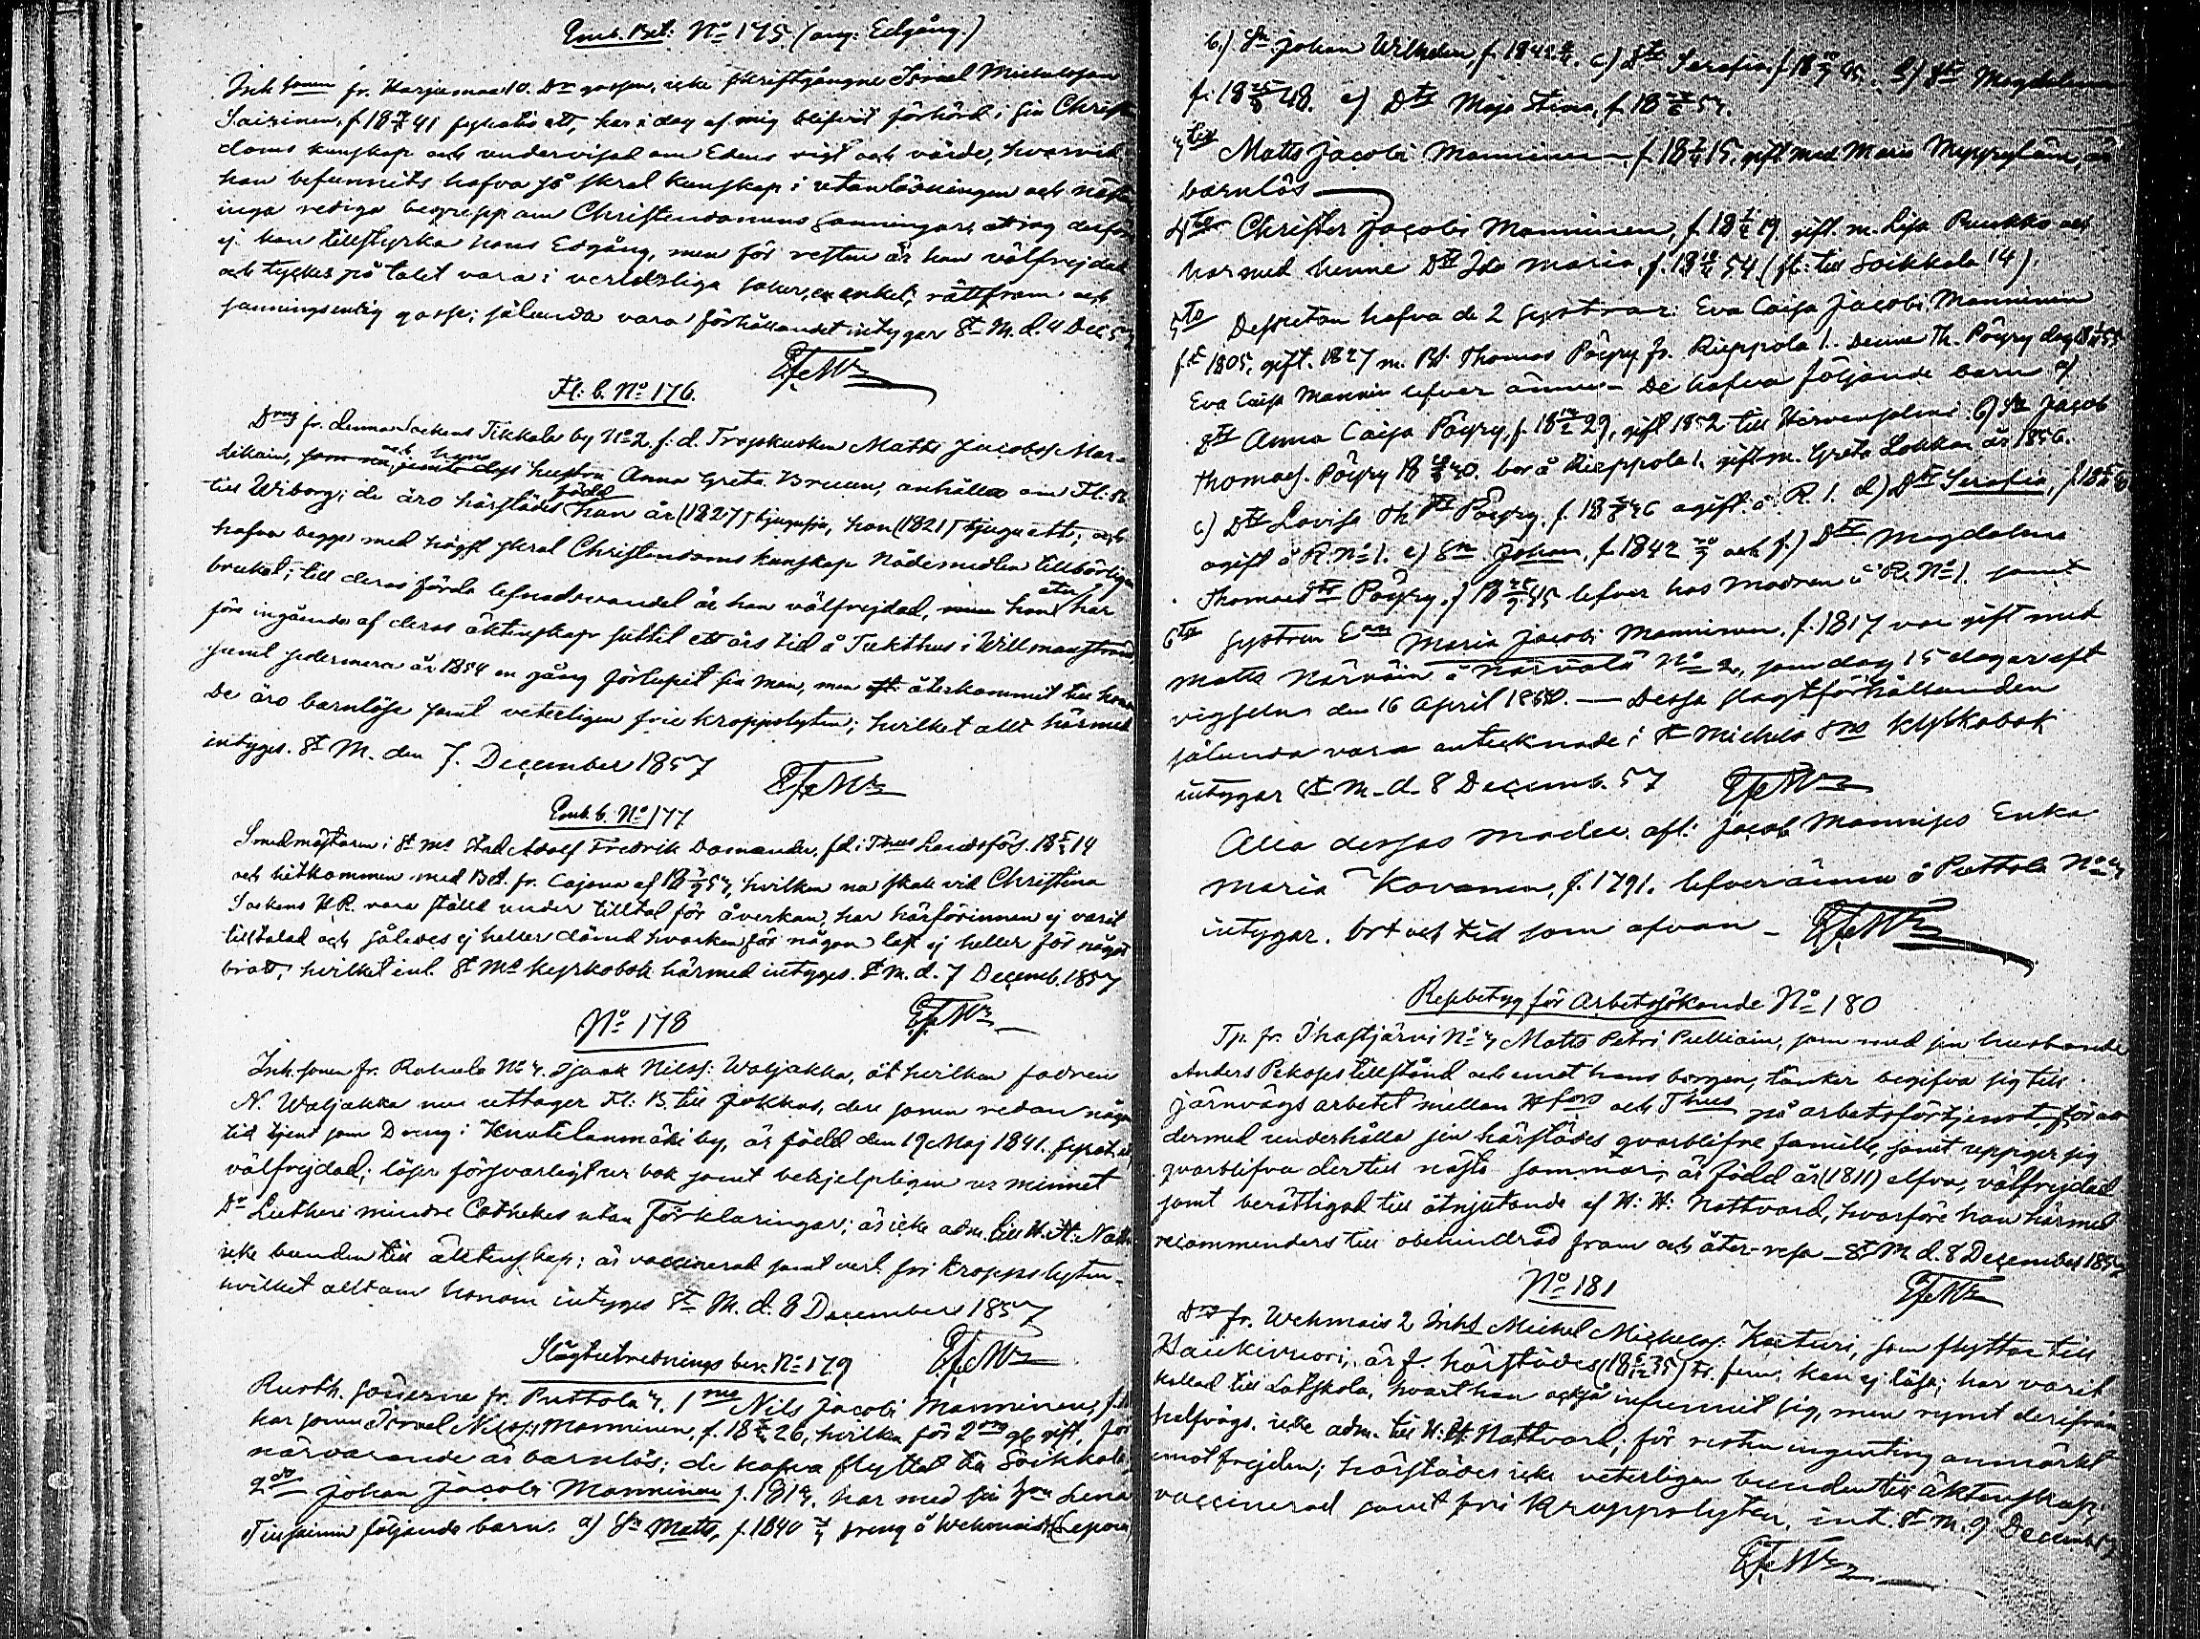 Emb. Bet: No 175. (ang: Edgång.)
Inh sonen fr. Harjumaa 10. Dr gossen, icke skriftgångne Israel Michelsson
Sairinen, f. 18 41 har i dag af mig blifvit förhörd i sin Christen
doms kunskap och undervisad om Edens vigt och värde, hvarvid
han befunnits hafva så skral kunskap i utanläsningen och nästan
inga rediga begrepp om Christendomens sanningar, at jag derföre
ej kan tillstyrka hans Edgång, men för resten är han välfrejdad
och tyckes på talet vara i verldsliga saker, en enkel, rättfram och
sanningsenlig gosse; sålunda vara förhållandet intygar St M. d. 4 Dec. 57
Fl: b. No 176.
Drng fr. denna Sockens Tikkala by No 2. f. d. Matts Jacobss. Mar-
dikain, och hans hustru Anna Greta Bruun, anhålla om Fl: B.
till Wiborg; de äro härstädes född han år (1827) tjugusju, hon (1821) tjuguett; och
hafva begge med högst skral Christendoms kunskap Nådemedlen tillbörligen
brukat; till deras förda lefnadsvandel är han välfrejdad, hon åter har
före ingående af deras äktenskap suttit ett års tid å Tukthus i Willmanstrand
samt sedermera år 1854 en gång förlupit sin man, men återkommit till honom
De äro barnlöse samt veterligen frie kroppslyten; hvilket allt härmed
intyges. St M. den 7. December 1857
Emb. b. No 177
Smedmästaren i St Ms Stad Adolf Fredrik Domander, fd. i Thus Landsförs. 18 14
och hitkommen med Bet. fr. Cajana af 18 57, hvilken nu skall vid Christina
Sockens HR. vara ställd under tilltal för åverkan, har härförinnan ej varit
tilltalad och således ej heller dömd hvarken för någon last ej heller för något
brott; hvilket enl. St Ms kyrkobok härmed intyges. St M. d. 7 Decemb. 1857
No 178
Inh. sonen fr. Rahula No 4. Isaak Nilss: Waljakka, åt hvilken fadren
N. Waljakka nu uttager Fl: B. till Jokkas, der sonen redan någon
tid tjent som Dreng i Knutilanmäki by, är född den 19 Maj 1841.
välfrejdad; läser försvarligt ur bok samt behjelpligen ur minnet
Dr Lutheri mindre Cathekes utan Förklaringar; är icke adm. till H. H: Nattv.
icke bunden till äktenskap; är vaccinerad samt vet. fri kroppslyten-
hvilket allt om honom intyges St M. d. 8 December 1857
Slägtutrednings bev. No 179
Rusth. sönerne fr. Puttola 4. 1mo Nils Jacobi Manninen,
har sonen Israel Nilss: Manninen, f. 18 26, hvilken för 2dra gg gift, för
närvarande är barnlös; de hafva flyttat till Soikkala
2do Johan Jacobi Manninen f. 1814. har med sin hu Lena
följande barn. a) Sn Matts, f. 1840 dreng å Wehmais
b.) Sn Johan Wilhelm, f. 1842. c) Dtr Serafia f. 18 45. d) Dtr Magdalena
f. 18 48. e) Dtr Maja Stina, f. 18 54.
3tio Matts Jacobi Manninen, f. 18 15. gift med Maria är
barnlös
4to Christer Jacobi Manninen, f. 18 19 gift m. Lisa Puukko och
har med henne Dtr Ida Maria, f. 18 54 (fl: till Soikkala 14).
5to Dessutan hafva de 2 systrar: Eva Caisa Jacobi Manninen
f. 1805, gift. 1827 m. Thomas Pöyry fr. Rieppola 1. Denne Th. Pöyry dog 18 55
Eva Caisa Mannin lefver ännu - De hafva följande barn a)
Dtr Anna Caisa Pöyry, f. 18 29, gift 1852 till Hirvensalmi. b) Sn Jacob
Thomass. Pöyry 18 30. bor å Rieppola 1. gift m. Greta Lokka år 1856.
c) Dtr Lovisa Th. Dtr Pöyry. f. 18 36 ogift å R. 1. d) Dtr Serafia, f. 18
ogift å R. No 1. e) Sn Johan, f. 1842 och f.) Dtr Magdalena
Thomæ Dtr Pöyry, f. 18 45 lefver hos modren å R. No 1. samt
6to systren Maria Jacobi Manninen, f. 1817 var gift med
Matts Närväin å Närvälä No 2, som dog 15 dagar eft
vigseln den 16 April 1850. — Dessa slagtförhållanden
sålunda vara antecknade i St Michels Sns kyrkobok
intygar St M. d. 8 Decemb. 57
Alla dessas moder afl: Jacob Mannises Enka
Maria Kovanen, f. 1791. lefver ännu å Puttola No 4
intygar. Ort och tid som ofvan -
Resebetyg för Arbetssökande No 180
Tp. fr. Ihastjärvi No 4 Matts Petri Pulliain, som med sin husbonde
Anders Pekoses tillstånd och emot hans borgen, tänker begifva sig till
järnvägsarbetet mellan Hfors och Thus på arbetsförtjenst, för att
dermed underhålla sin härstädes qvarblifne familie, samt uppger sig
qvarblifva dertill nästa sommar; är född år (1811) elfva, välfrejdad
samt berättigad till åtnjutande af H: H: Nattvard, hvarföre han härmed
recommenderas till obehindrad fram och åter-resa - St M d. 8 December 1857
No 181
fr. Wehmais 2 Inhs Michel Michelss. Kaituri, som flyttar till
Haukivuori, är f. härstädes (18 35) tr. fem; kan ej läsa; har varit
kallad till Lässkola, hvart han också infunnit sig, men rymt derifrån
halfvägs. icke adm. till H: H: Nattvard; för resten ingenting anmärkt
emot frejden; härstädes icke veterligen bunden till äktenskap,
vaccinerad samt fri kroppslyten. int. St M. 9 Decemb 57